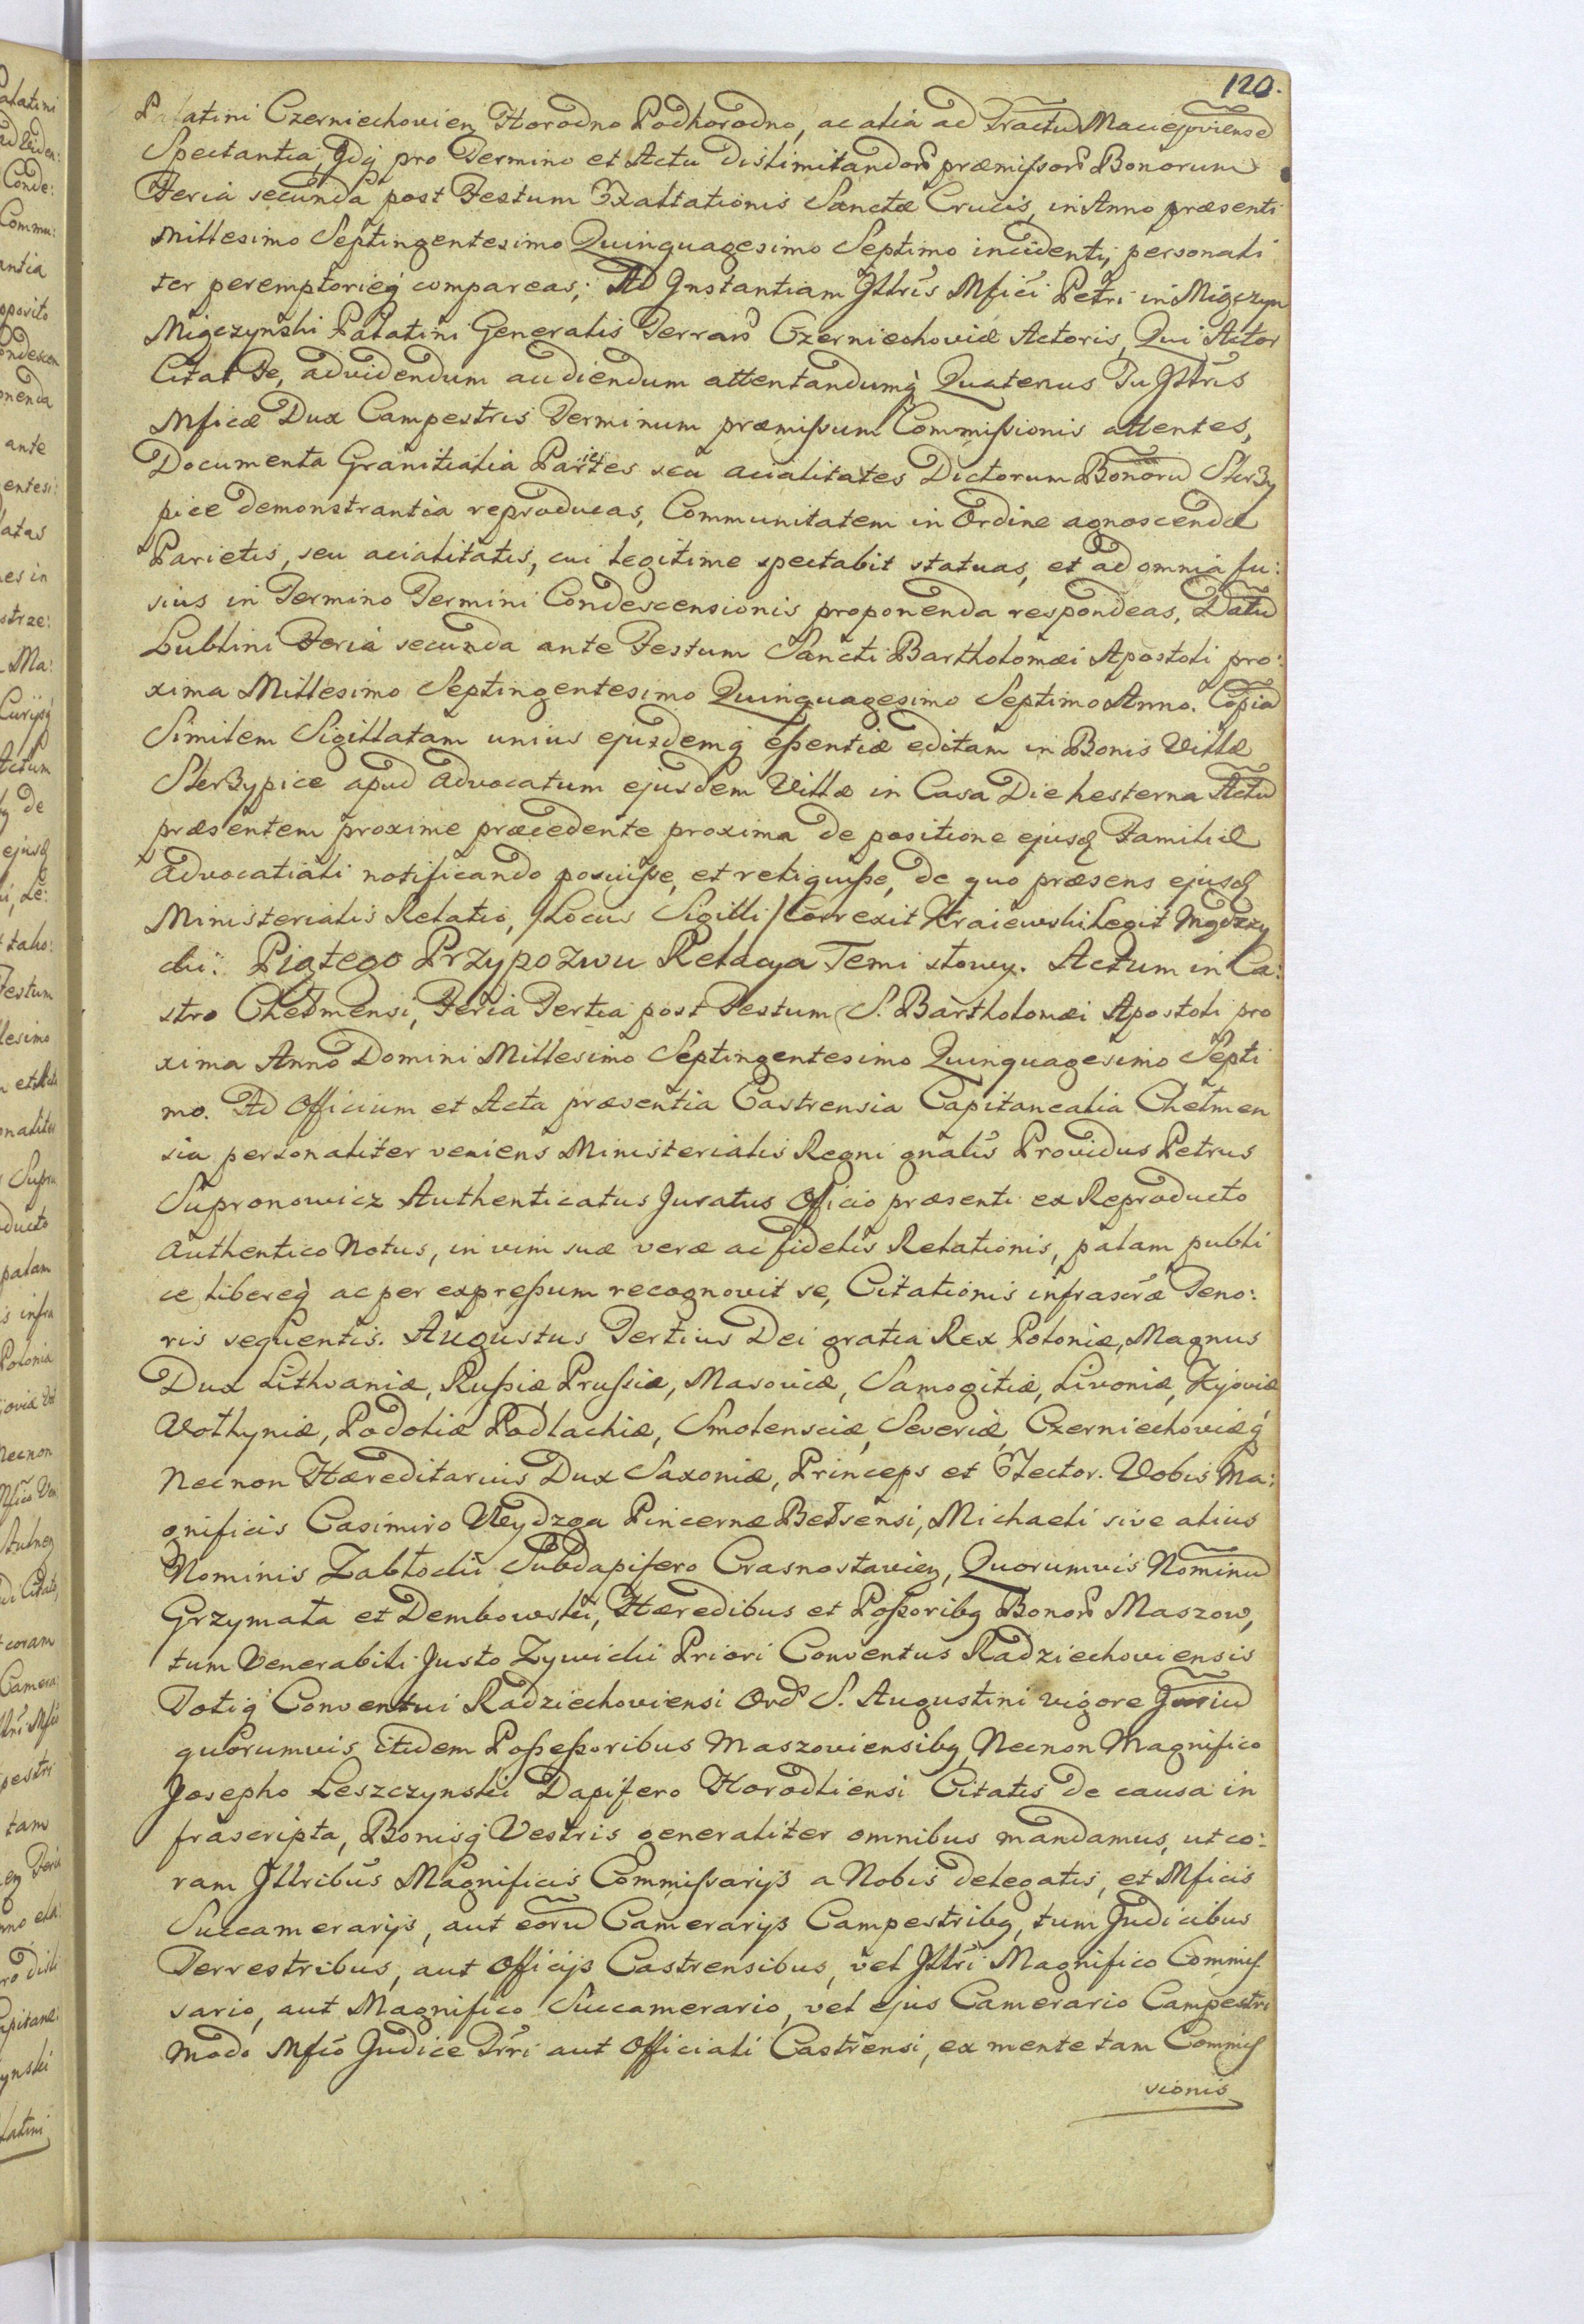 120.
Palatini Czerniechovien Horodno Podhorodno, ac alia ad Tractũ Maciejoviensẽ
Spectantia, Jdq̃ pro Termino et Actu dislimitandorũ præmiſsorũ Bonorum
Feria secunda post Festum Exaltationis Sanctæ Crucis, in Anno præsenti
Millesimo Septingentesimo Quinquagesimo Septimo incidenti, personali
ter peremptorieq̃ compareas; Ad Jnstantiam Jllr̃is Mfici Petri in Miączyn
Miączynski Palatini Generalis Terrarũ Czerniechoviæ Actoris, Qui Actor
Citat Te, advidendum audiendum attentandumq̃ Quatenus Tu Jllr̃is
Mficæ Dux Campestris Terminum præmiſsum Commiſsionis attentes,
Documenta Granitialia Parietes seu acialitates Dictorum Bonorũ Sterzy
pice demonstrantia reproducas, Communitatem in Ordine agnoscendæ
Parietis, seu acialitatis, cui legitime spectabit statuas, et ad omnia fu:
sius in Termino Termini Condescensionis proponenda respondeas, Datũ
Lublini Feria secunda ante Festum Sancti Bartholomæi Apostoli pro:
xima Millesimo Septingentesimo Quinquagesimo Septimo Anno. Copiã
Similem Sigillatam unius ejusdemq̃ eſsentiæ editam in Bonis Villæ
Sterzypice apud Advocatum ejusdem Villæ in Casa Die hesterna Actũ
præsentem proxime præcedente proxima de positione ejusq Familiæ
Advocatiali notificando posuiſse, et reliquiſse, de quo præsens ejusq
Ministerialis Relatio, /Locus Sigilli/ Correxit Kraiewski Legit Mędrzy
cki. Piątego Przypozwu Relacya Temi słowy. Actum in Ca:
stro Chełmensi, Feria Tertia post Festum S. Bartholomæi Apostoli pro
xima Anno Domini Millesimo Septingentesimo Quinquagesimo Septi
mo. Ad Officium et Acta præsentia Castrensia Capitanealia Chełmen
sia personaliter veniens Ministerialis Regni gnalis Providus Petrus
Supronowicz Authenticatus Juratus Officio præsenti ex Reproducto
Authentico Notus, in vim suæ veræ ac fidelis Relationis, palam publi
ce libereq̃ ac per expreſsum recognovit se, Citationis infrascr̃æ Teno:
ris sequentis. Augustus Tertius Dei gratia Rex Poloniæ, Magnus
Dux Lithvaniæ, Ruſsiæ Pruſsiæ, Masoviæ, Samogitiæ, Livoniæ, Kijoviæ
Volhyniæ, Podoliæ Podlachiæ, Smolensciæ, Severiæ, Czerniechoviæq̃
Necnon Hæreditarius Dux Saxoniæ, Princeps et Elector. Vobis Ma:
gnificis Casimiro Weydzga Pincernæ Bełsensi, Michaeli sive alius
Nominis Zabłocki Subdapifero Crasnostavien, Quorumvis Nominũ
Grzymała et Dembowski, Hæredibus et Poſsoribq Bonorũ Maszow,
tum Venerabili Justo Zywicki Priori Conventus Radziechoviensis
Totiq̃ Conventui Radziechoviensi Ord S. Augustini vigore Juriũ
quorumvis itidem Poſseſsoribus Maszoviensibq, Necnon Magnifico
Josepho Leszczynski Dapifero Horodliensi Citatis de causa in
frascripta, Bonisq̃ Vestris generaliter omnibus mandamus, ut co:
ram Jllribus Magnificis Commiſsarijs a Nobis delegatis, et Mficis
Succamerarijs, aut eorũ Camerarijs Campestribq, tum Judicibus
Terrestribus, aut Officijs Castrensibus, vel Jllr̃i Magnifico Commiſ
sario, aut Magnifico Succamerario, vel ejus Camerario Campestri
modo Mfico Judice Trr̃i aut Officiali Castrensi, ex mente tam Commiſ
sionis